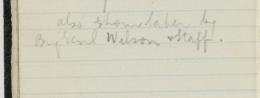 also shown later by
Brig Genl Wilson & Staff.